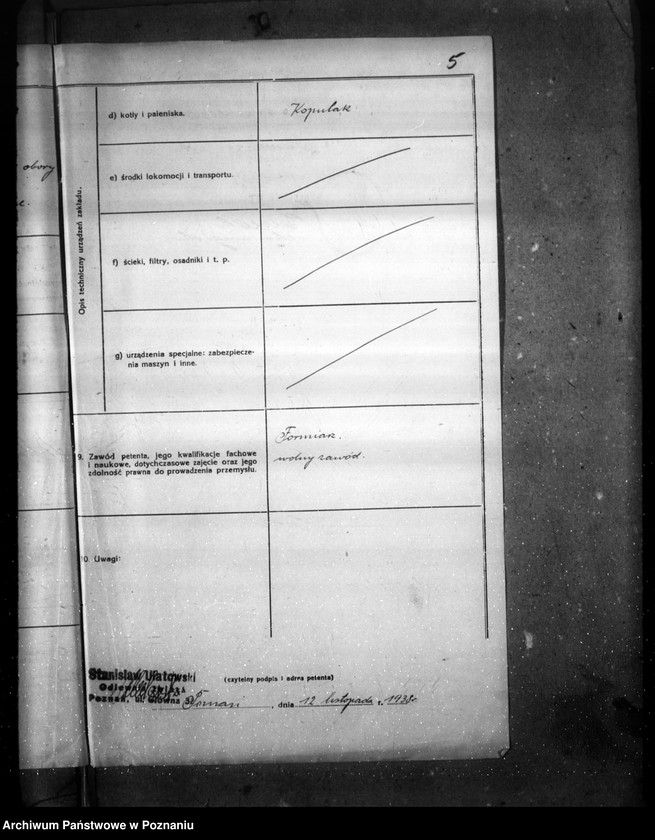 5
obory
Opis techniczny urządzeń zakładu.
d) kotły i paleniska.
Kopulak
e) środki lokomocji i transportu.
f) ścieki, filtry, osadniki i t. p.
g) urządzenia specjalne: zabezpiecze-
nia maszyn i inne.
9. Zawód petenta, jego kwalifikacje fachowe
i naukowe, dotychczasowe zajęcie oraz jego
zdolność prawna do prowadzenia przemysłu.
Formiarz.
wolny zawód.
10. Uwagi:
Stanisław Ufatowski
(czytelny podpis i adres petenta)
Poznań, ul. Główna
Poznań, dnia 12 listopada r. 1938r.
Archiwum Państwowe w Poznaniu